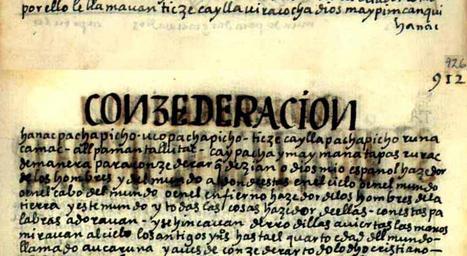 por ello le llamauan ticze caylla uiracocha dios maypim canqui
hanac
926
912
CONZEDERACION
hanac pachapicho - ucopachapicho - ticze caylla pachapicho runa
camac - allpaman tallutac - caypacha ymaymana tapas rurac
demanera para conzederar q̃ dezian o dios mio español hazedor
de los hombres y del mundo a donde estas en el cielo o en el mundo
o en el cabo del mundo o en el enfierno hazedor de los hombres de la
tierra y este mundo y todas las cosas hazedor de ellas - con estas pa
labras adorauan - y se hincauan de rrodillas auiertas las manos
mirauan al cielo los antigos yns hasta el quarto edad del mundo -
llamado aucaruna y aues de conzederar todo lo dho cristiano -